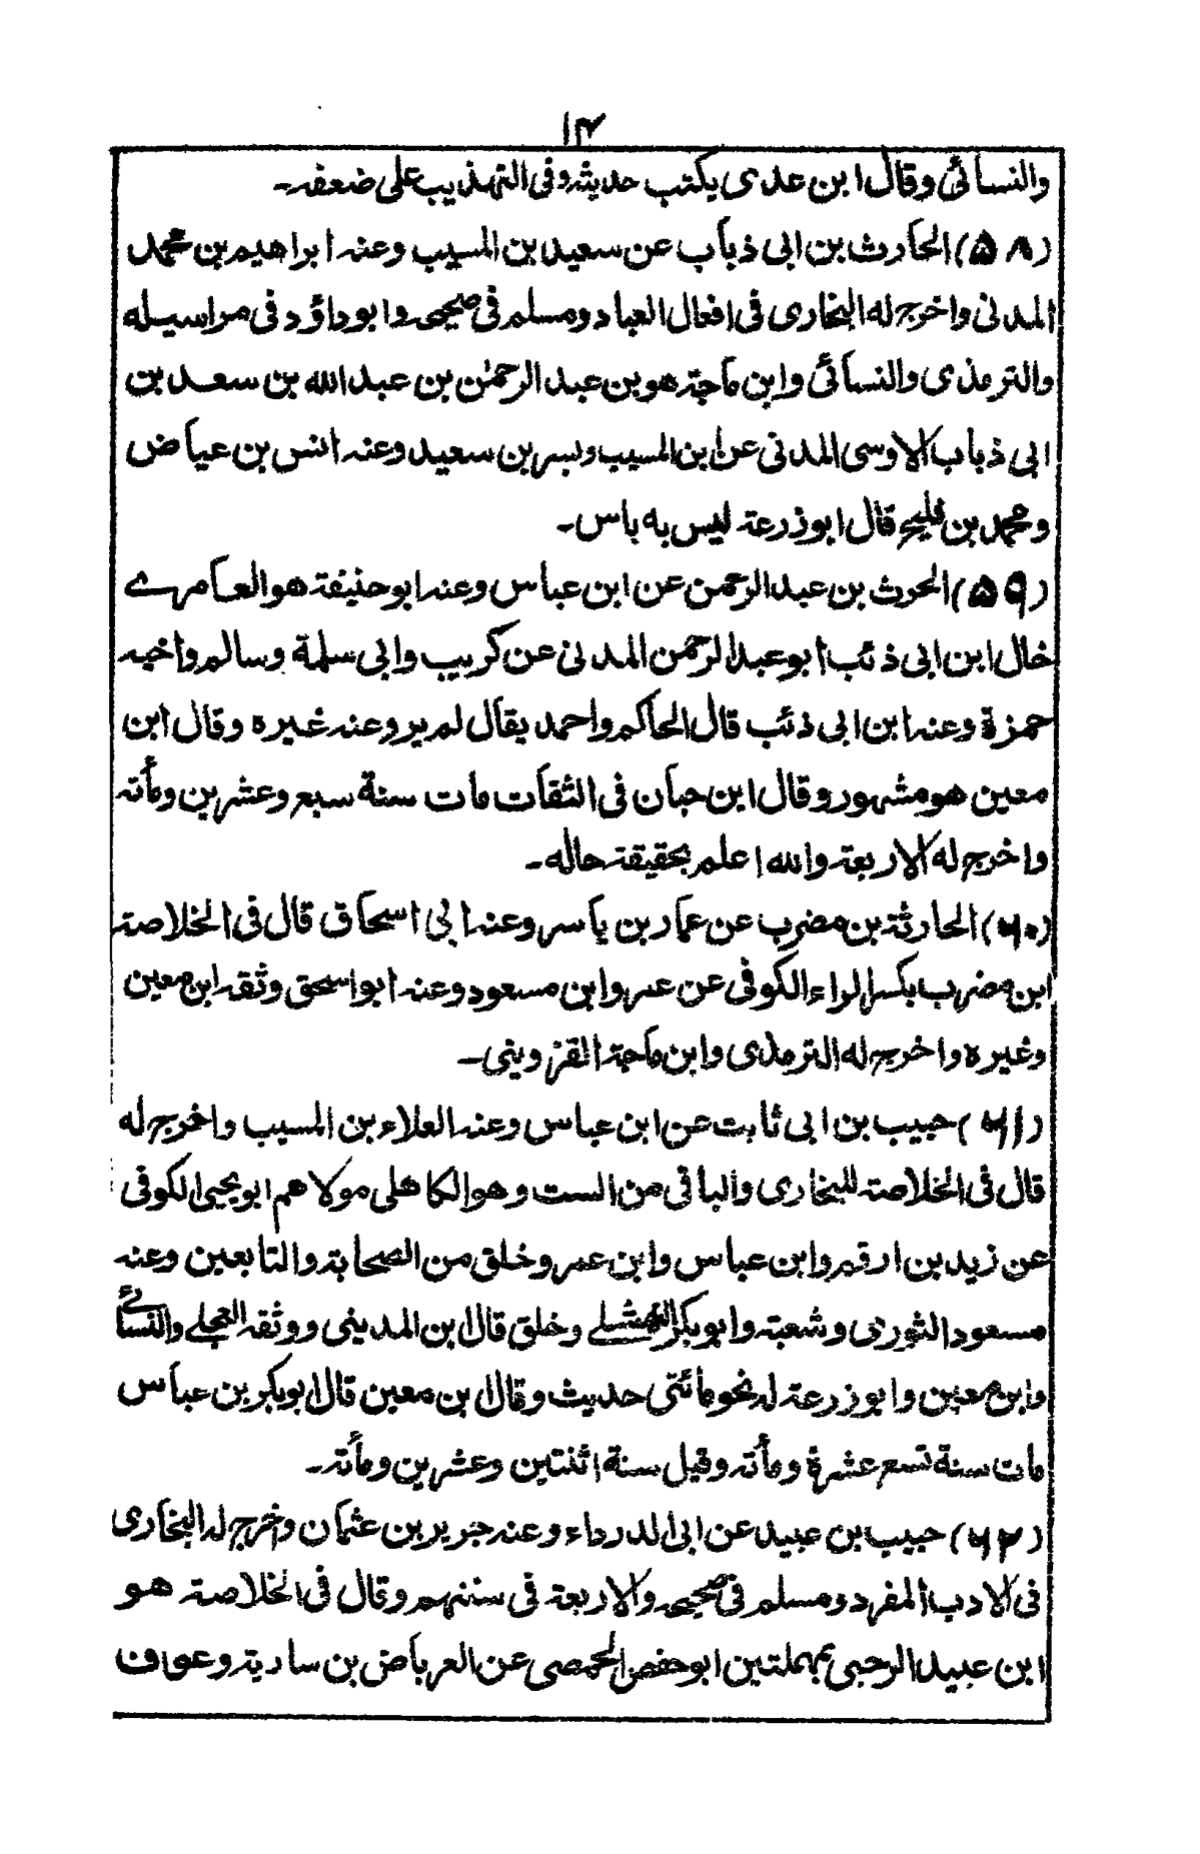 ۱۴
والنسائی وقال ابن عدی یکتب حدیثہ وفی التہذیب علی ضعفہ۔
(۵۸) الحارث بن ابی ذباب عن سعید بن المسیب وعنہ ابراھیم بن محمد
المدنی واخرج له البخاری فی افعال العباد ومسلم فی صحیحہ وابوداؤد فی مراسیله
والترمذی والنسائی وابن ماجۃ ھو بن عبد الرحمٰن بن عبد الله بن سعد بن
ابی ذباب الاوسی المدنی عن ابن المسیب وبسر بن سعید وعنہ انس بن عیاض
ومحمد بن فلیح قال ابوزرعۃ لیس به باس۔
(۵۹) الحرث بن عبد الرحمن عن ابن عباس وعنہ ابوحنیفۃ ھو العامرے
خال ابن ابی ذئب ابو عبد الرحمن المدنی عن کریب وابی سلمة وسالم واخیہ
حمزة وعنہ ابن ابی ذئب قال الحاکم واحمد یقال لم یرو عنہ غیرہ وقال ابن
معین ھو مشہور وقال ابن حبان فی الثقات مات سنة سبع وعشرین ومأتہ
واخرج له الاربعۃ والله اعلم بحقیقۃ حاله۔
(۶۰) الحارثۃ بن مضرب عن عمار بن یاسر وعنہ ابی اسحاق قال فی الخلاصۃ
ابن مضرب بکسر الراء الکوفی عن عمر وابن مسعود وعنہ ابو اسحق وثقہ ابن معین
وغیرہ واخرج له الترمذی وابن ماجۃ القزوینی۔
(۶۱) حبیب بن ابی ثابت عن ابن عباس وعنہ العلاء بن المسیب واخرج له
قال فی الخلاصۃ للبخاری والباقی من الست وھو الکاھلی مولاھم ابو یحیی الکوفی
عن زید بن ارقم وابن عباس وابن عمر وخلق من الصحابۃ والتابعین وعنہ
مسعود الثوری وشعبۃ وابوبکر النہشلے وخلق قال ابن المدینی ووثقہ العجلے والنسائے
وابن معین وابوزرعۃ لہ نحو مائتی حدیث وقال ابن معین قال ابوبکر بن عباس
مات سنة تسع عشرة ومأتہ وقیل سنة اثنتین وعشرین ومأتہ۔
(۶۲) حبیب بن عبید عن ابی الدرداء وعنہ جریر بن عثمان واخرج لہ البخاری
فی الادب المفرد ومسلم فی صحیحہ والاربعۃ فی سننہم وقال فی الخلاصۃ ھو
ابن عبید الرحبی بمہملتین ابوحفص الحمصی عن العرباض بن ساریۃ وعوف